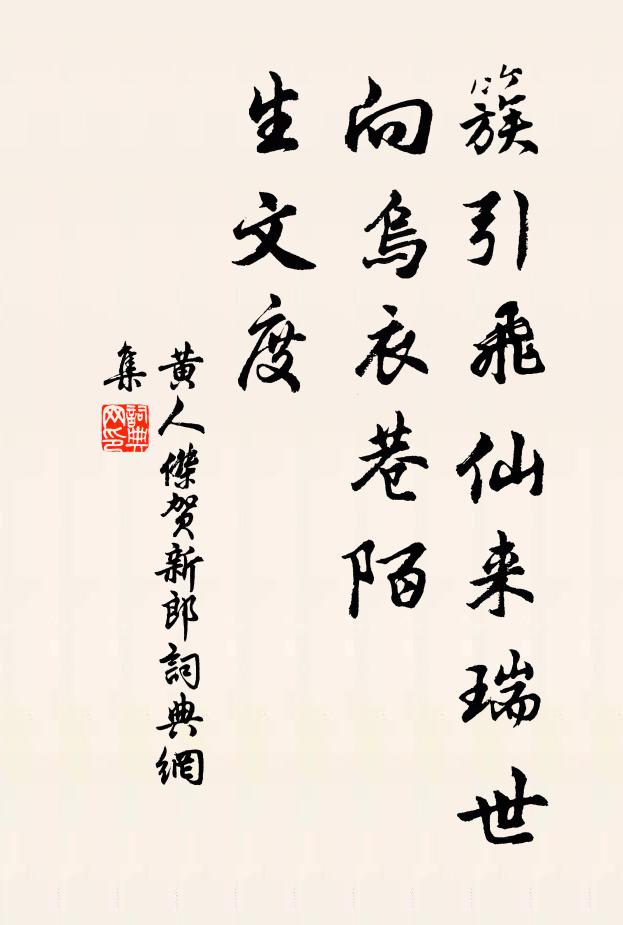 簇引飛仙来瑞世
向烏衣巷陌
生文度
黄人傑贺新郎詞典網
集
詞典
网印